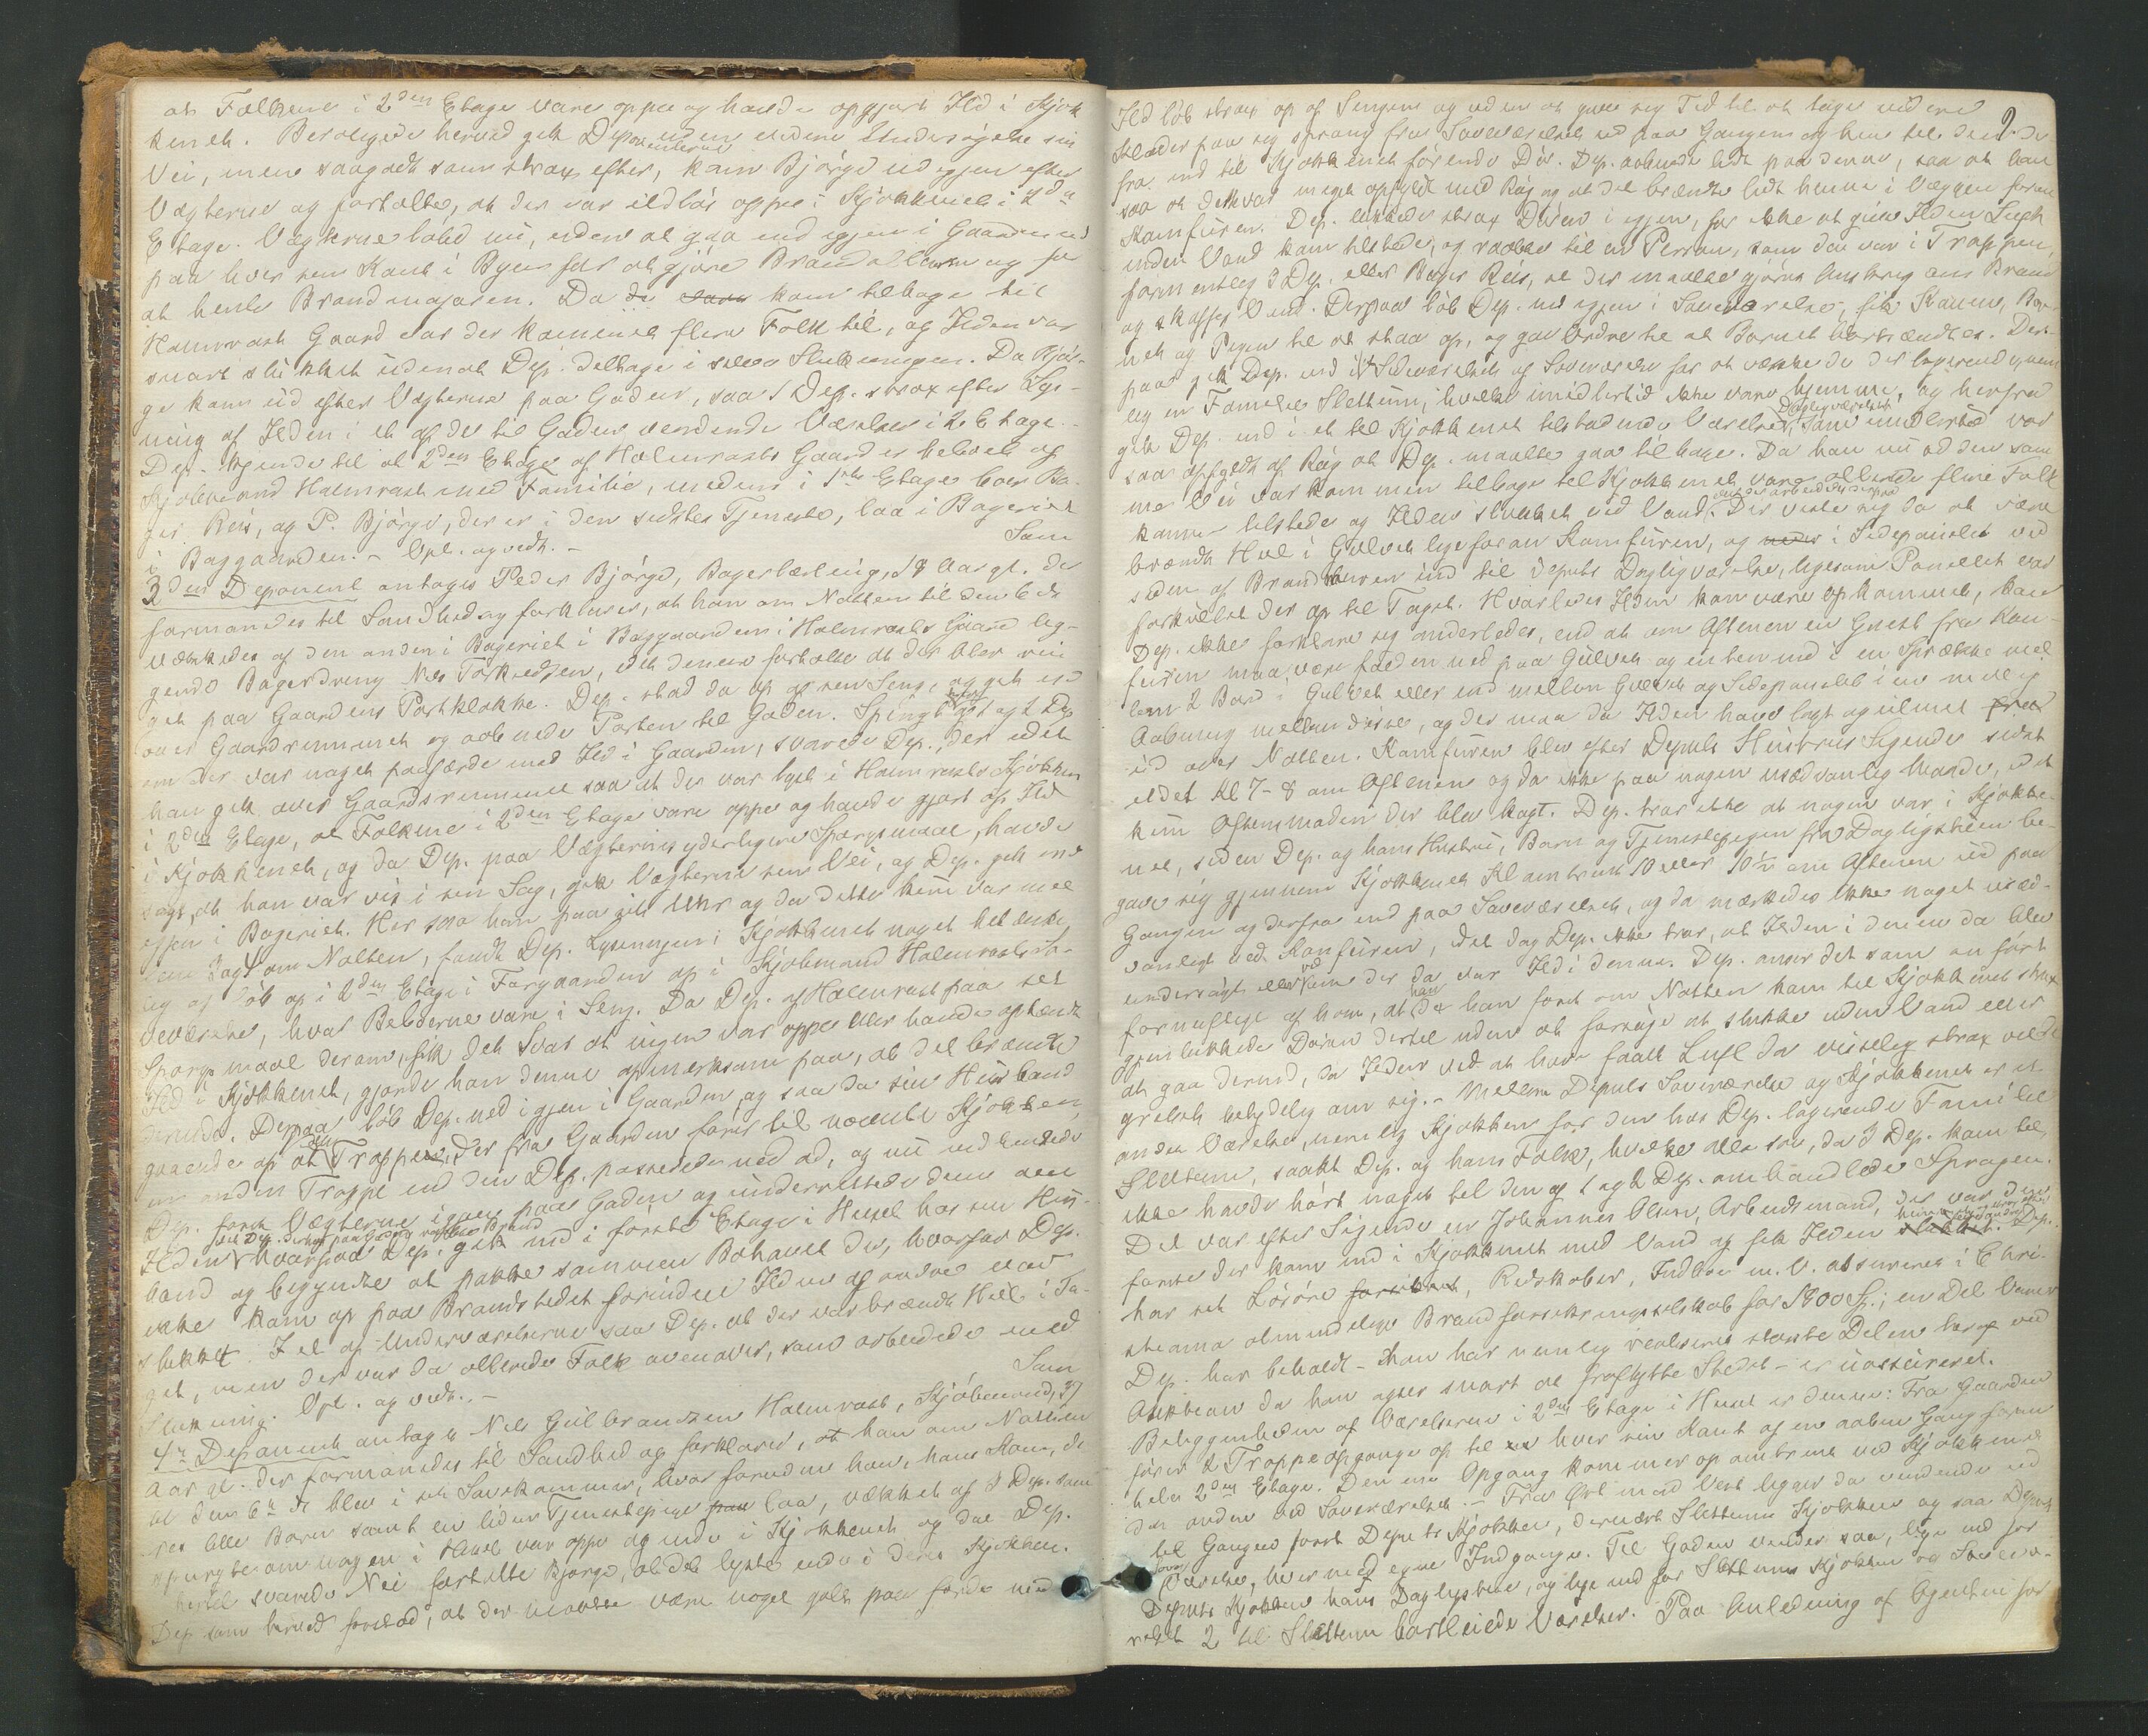 at Folkene i 2den Etage vare oppe og havde opgjort Ild i Kjök
kenet. Beroligede herved gik Deponenterne uden videre Undersögelse sin
Vei, men saagodt som strax efter, kom Björge ud igjen efter
Vægterne og fortalte, at der var ildlös oppe i Kjökkenet i 2den
Etage. Vægterne löb nu, uden at gaa ind igjen i Gaarden ud
paa hver sin Kant i Byen for at gjöre Brandallarm og for
at hente Brandmajoren. Da de vare kom tilbage til
Holmrasts Gaard var der kommet flere Folk til, og Ilden var
snart slukket uden at Dep. deltoge i selve Slukningen. Da Björ-
ge kom ud efter Vægterne paa Gaden, saa 1 Dep. strax efter Lys-
ning af Ilden i et af de til Gaden vendende Værelser i 2 Etage.
Dep. kjende til at 2den Etage af Holmrasts Gaard er beboet af
Kjöbmand Holmrast med Familie, medens i 1ste Etage boer Ba-
ger Reis, og P. Björge, der er i den sidstes Tjeneste, laa i Bageriet
i Baggaarden. - Opl. og vedt. -
Som
3die Deponent antoges Peder Björge, Bagerlærling, 18 Aar gl. der
formanedes til Sandhed og forklarer, at han om Natten til den 6 ds
vækkedes af den anden i Bageriet i Baggaarden i Holmrasts Gaard lig-
gende Bagerdreng Nils Torkildsen, idet denne fortalte at der blev rin
get paa Gaardens Portklokke. Dep. stod da op af sin Seng, og gik ud
over Gaardrummet og aabnede Porten til Gaden. Spurgt först af 1 Dep
om der var noget paafærde med Ild i Gaarden, svarede Dep., der idet
han gik over Gaardsrummet saa at der var lyst i Holmrasts Kjökken
i 2den Etage, at Folkene i 2den Etage vare oppe og havde gjort op Ild
i Kjökkenet, og da Dep. paa Vægternes yderligere Spörgsmaal, havde
sagt, at han var vis i sin Sag, gik Vægterne sin Vei, og Dep. gik ind
igjen i Bageriet. Her saa han paa sit Uhr og da dette kun var mel
lem 3 og 4 om Natten, fandt Dep. Lysningen i Kjökkenet noget betænke
lig og löb op i 2den Etage i Forgaarden op i Kjöbmand Holmrasts So-
veværelse, hvor Beboerne vare i Seng. Da Dep. af Holmrast paa sit
Spörgsmaal derom, fik det Svar at ingen var oppe eller havde optændt
Ild i Kjökkenet, gjorde han denne opmærksom paa, at det brændte
derinde. Derpaa löb Dep. ned igjen i Gaarden og saa da sin Husbond
gaaende op ad den Trappe, der fra Gaarden förer til nævnte Kjökken,
en anden Trappe end den Dep. passerede ned ad, og nu underrettede
Dep. först Vægterne igjen paa Gaden og underrettede dem om
Ilden hvorpaa Dep. gik ind i förste Etage i Huset hos sin Hus-
bond og begyndte at pakke sammen Bohavet der, hvorfor Dep.
ikke kom op paa Brandstedet förinden Ilden af andre var
slukket. I et af Underværelserne saa Dep. at der var brændt Hul i Ta-
get, men der var da allerede Folk ovenover, som arbeidede med
Slukning. Opl. og vedt. -
Som
4de Deponent antoges Nils Gulbrandsen Holmrast, Kjöbmand, 37
Aar gl. der formanedes til Sandhed og forklarer, at han om Natten
til den 6te ds blev i sit Sovekammer, hvor foruden han, hans Kone, de-
res lille Barn samt en liden Tjenestepige laa, vækket af 3 Dep. som
spurgte om nogen i Huset var oppe og inde i Kjökkenet og da Dep.
hertil svarede Nei fortalte Björge, at det lyste inde i deres Kjökken.
Dep som herved forstod, at der maatte være noget galt paa færde med
9
Ild löb strax op af Sengen og uden at give sig Tid til at tage videre
Klæder paa sig sprang fra Soveværelset ud paa Gangen og hen til den der
fra ind til Kjökkenet förende Dör. Dep. aabnede lidt paa denne, saa at han
saa at det var meget opfyldt med Rög og at det brændte lidt henne i Væggen foran
Komfuren. Dep. lukkede strax Dören i igjen, for ikke at give Ilden Luft
inden Vand kom tilstede, og raabte til en Person, som da var i Trappen,
formentlig 3 Dep. eller Bager Reis, at der maatte gjöres Anskrig om Brand
og skaffes Vand. Derpaa löb Dep. ind igjen i Soveværelset, fik Konen, Bar-
net og Pigen til at staa op, og gav Ordre til at Barnet bortsendtes. Der-
paa gik Dep. ind i Sideværelset af Soveværelset for at vække de der logerende, nem
lig en Familie Slettum, hvilke imidlertid ikke vare hjemme, og herfra
gik Dep. ind i et til Kjökkenet tilstødende Værelse, Dagligværelset, som imidlertid var
saa opfyldt af Rög at Dep. maatte gaa tilbage. Da han nu ad den sam
me Vei var kommen tilbage til Kjökkenet, vare allerede flere Folk
komne tilstede og Ilden slukket ved Vand. Der viste sig da at være
brændt Hul i Gulvet lige foran Komfuren, og i Sidepanelet ved
siden af Brandmuren ind til Deputs Dagligværelse, ligesom Panelet var
forkullet der op til Taget. Hvorledes Ilden kan være opkommet, kan
Dep. ikke forklare sig anderledes, end at om Aftenen en Gnist fra Kom-
furen maa være falden ned paa Gulvet og enten ind i en Sprække mel
lem 2 Bord i Gulvet eller ind mellem Gulvet og Sidepanelet i en mulig
Aabning mellem disse, og der maa da Ilden have lagt og ulmet
ud over Natten. Komfuren blev efter Deputs Hustrues Sigende sidst
ildet Kl 7-8 om Aftenen og da ikke paa nogen usædvanlig Maade, idet
kun Aftensmaden der blev kogt. Dep. tror ikke at nogen var i Kjökke-
net, siden Dep. og hans Hustru, Barn og Tjenestepigen fra Dagligstuen be-
gave sig gjennem Kjökkenet Kl omtrent 10 eller 10½ om Aftenen ud paa
Gangen og derfra ind paa Soveværelset, og da mærkedes ikke noget usæd-
vanligt ved Komfuren, idet dog Dep. ikke tror, at Ilden i denne da blev
undersögt eller om der da var Ild i denne. Dep. anser det som en fört
fornuftigt af ham, at da han först om Natten kom til Kjökkenet strax
gjenlukkede Dören dertil uden at forsöge at slukke uden Vand eller
at gaa derind, da Ilden ved at have faaet Luft da visselig strax vilde
grebet betydelig om sig. - Mellem Deputs Soveværelse og Kjökkenet er et
andet Værelse, nemlig Kjökken for den hos Dep. logerende Familie
Slettum, saavel Dep. og hans Folk, hvilke alle sov, da 3 Dep. kom til,
ikke havde hört noget til den af 1 og 2 Dep. omhandlede Spragen.
Det var efter Sigende en Johannes Olsen, Arbeidsmand, der var den
förste der kom ind i Kjökkenet med Vand og fik Ilden slukket. Dep.
har sit Lösöre forsikret, Redskaber, Indbo m.V. assureret i Chri-
stiania almindelige Brandforsikringsselskab for 1800 Sp.; en Del Varer
Dep. har beholdt - han har nemlig realiseret störste Delen heraf ved
Auktion da han agter snart at fraflytte Stedet - er uassureret.
Beliggenheden af Værelserne i 2den Etage i Huset er denne: Fra Gaarden
förer 2 Trappeopgange op til hver sin Kant af en aaben Gang foran
hele 2den Etage. Den ene Opgang kommer op omtrent ved Kjökkenet
den anden ved Soveværelset. - Fra Öst mod Vest ligger da vendende ud
til Gangen först Deputs Kjökken, dernæst Slettums Kjökken og saa Deputs
Soveværelse, hver med egne Indgange. Til Gaden vender saa, lige ind for
Deputs Kjökken hans Dagligstue, og lige ind for Slettums Kjökken og Soveva-
relset 2 til Slettum bortleiede Værelser. Paa Anledning af Agenten for